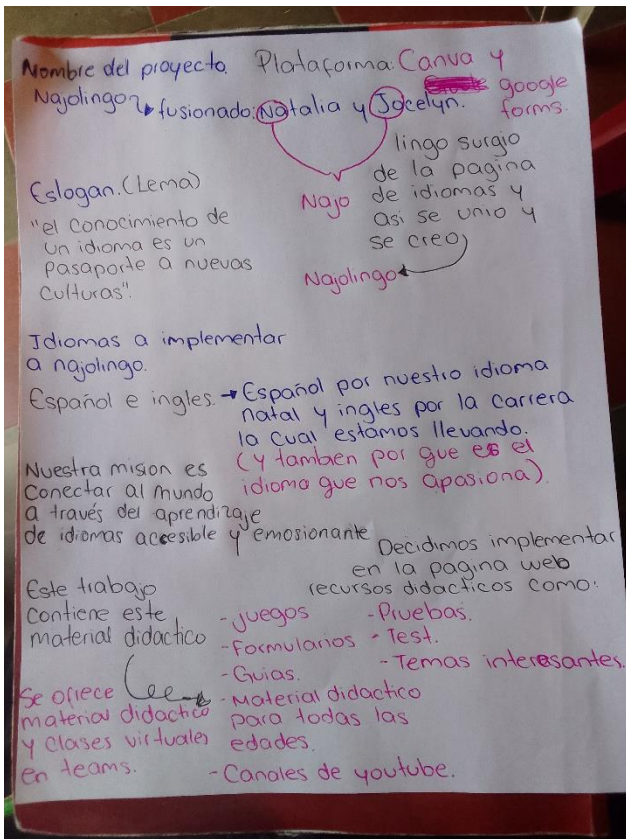 Nombre del proyecto. Plataforma: Canva y
google
forms.
Najolingo fusionado: Natalia y Jocelyn.
Najo
lingo surgio
de la pagina
de idiomas y
asi se unio y
se creo
Najolingo
Eslogan. (Lema)
"el conocimiento de
un idioma es un
pasaporte a nuevas
culturas".
Idiomas a implementar
a najolingo.
Español e ingles. → Español por nuestro idioma
natal y ingles por la carrera
la cual estamos llevando.
(y tambien por que es el
idioma que nos apasiona).
Nuestra mision es
conectar al mundo
a través del aprendizaje
de idiomas accesible y emosionante
Decidimos implementar
en la pagina web
recursos didacticos como:
Este trabajo
contiene este
material didactico
- Juegos
- Formularios
- Guias.
- Material didactico
para todas las
edades.
- Canales de youtube.
- Pruebas.
- Test.
- Temas interesantes.
Se ofrece
material didactico
y clases virtuales
en teams.